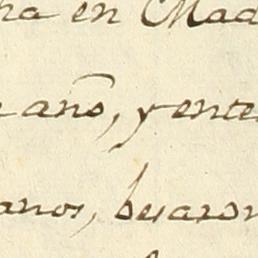 ha en Mad
año, y ente
anos, besaron